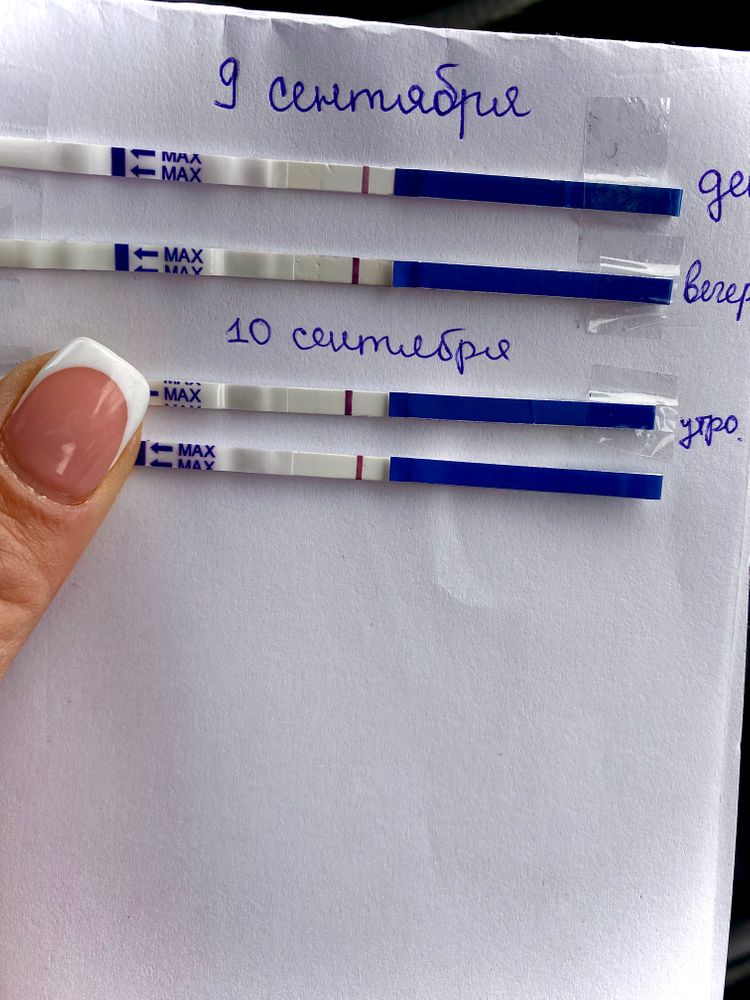 9 сентября
MAX
MAX
MAX
MAX
вечер
10 сентября
MAX
MAX
утро.
MAX
MAX